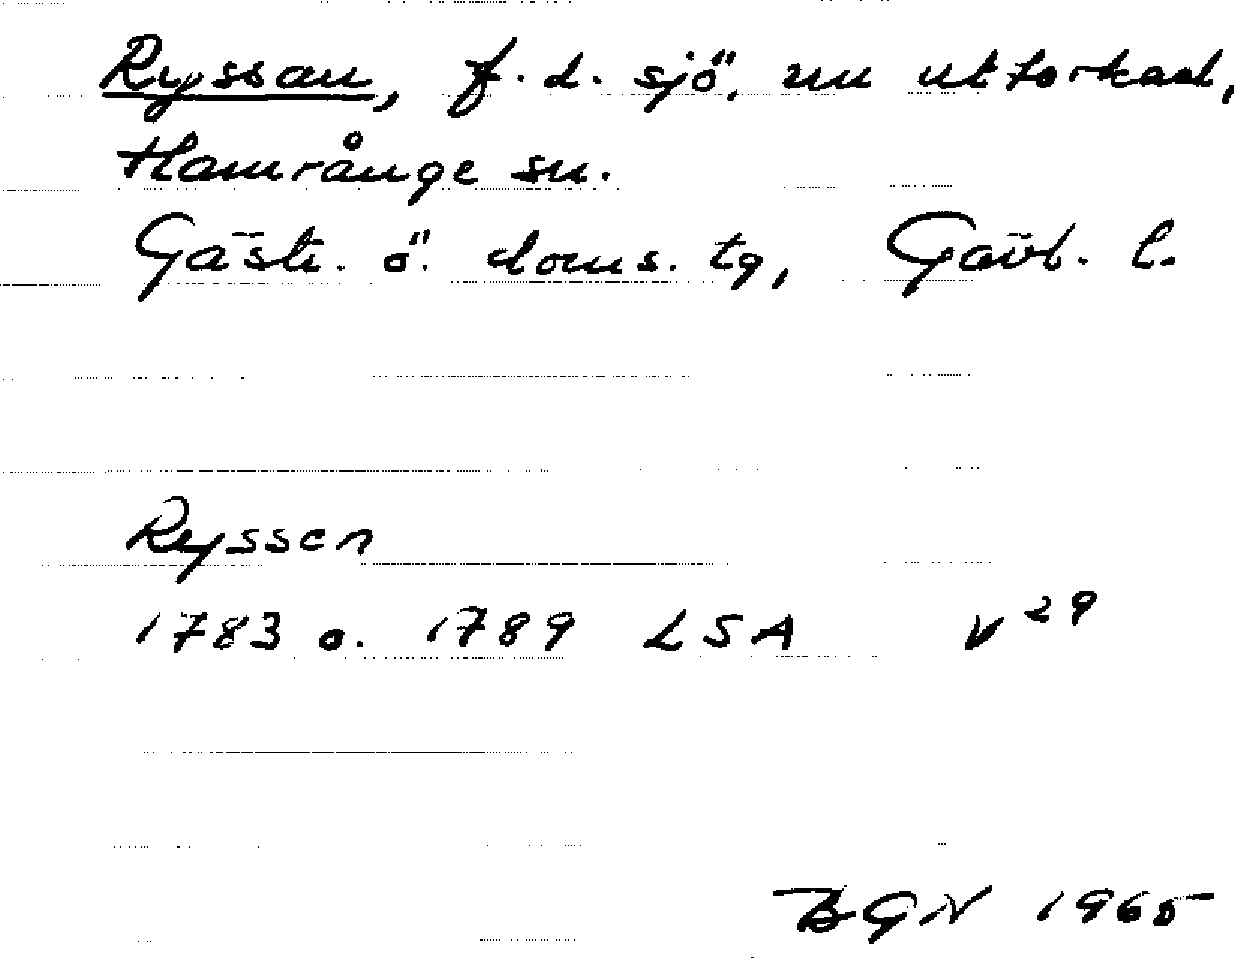 Ryssan, f.d. sjö, nu uttorkad,
Hamrånge sn.
Gästr. ö. doms. tg, Gävl. l.
Ryssen
1783 o. 1789 LSA V29
BGN 1965